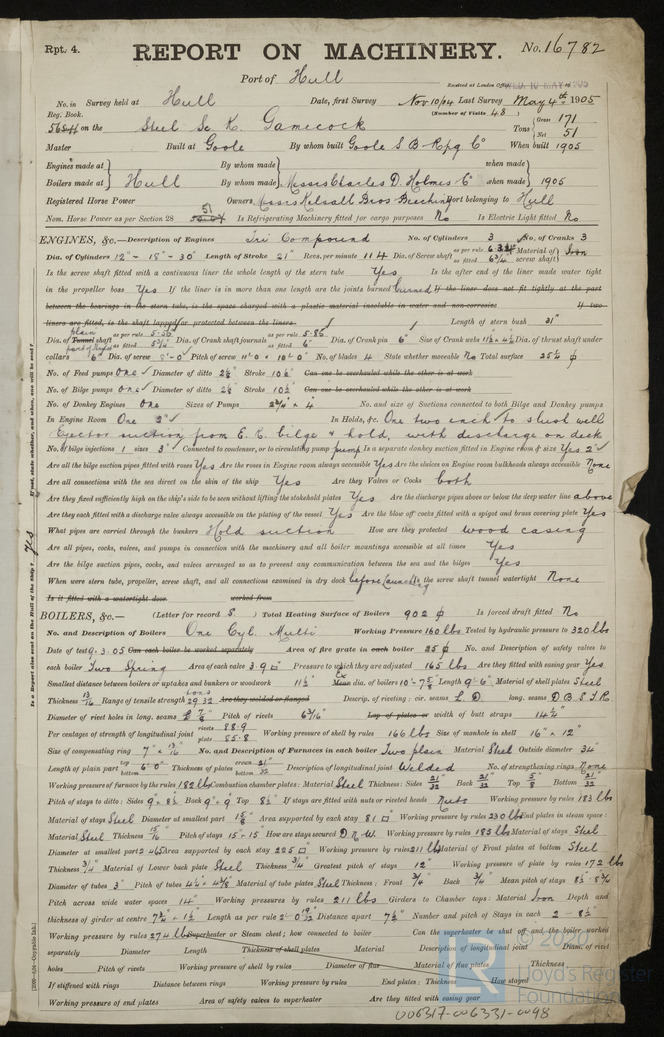 Rpt. 4.
REPORT ON MACHINERY.
No. 16782
Port of Hull
No. in Survey held at Hull Date, first Survey Nov 10/04 Last Survey May 4th 1905
Reg. Book. (Number of Visits 43)
on the Steel Sc. K. Gamecock Tons Gross 171 Net 51
Master Built at Goole By whom built Goole S B & Rpg Co When built 1905
Engines made at By whom made when made
Boilers made at Hull By whom made Messrs Charles D. Holmes & Co when made 1905
Registered Horse Power Owners Messrs Kelsall Bros & Beeching Port belonging to Hull
Nom. Horse Power as per Section 28 51 Is Refrigerating Machinery fitted for cargo purposes No Is Electric Light fitted No
ENGINES, &c.—Description of Engines Tri Compound No. of Cylinders 3 No. of Cranks 3
Dia. of Cylinders 12" - 18" - 30" Length of Stroke 21" Revs. per minute 114 Dia. of Screw shaft as per rule as fitted 6 3/4" Material of screw shaft Iron
Is the screw shaft fitted with a continuous liner the whole length of the stern tube Yes Is the after end of the liner made water tight
in the propeller boss Yes If the liner is in more than one length are the joints burned burned If the liner does not fit tightly at the part
between the bearings in the stern tube, is the space charged with a plastic material insoluble in water and non-corrosive If two
liners are fitted, is the shaft lapped or protected between the liners Length of stern bush 31"
Dia. of Tunnel shaft as per rule 5.56 as fitted 5 3/4" Dia. of Crank shaft journals as per rule 5.86 as fitted 6" Dia. of Crank pin 6" Size of Crank webs 11 1/2 x 4 1/2 Dia. of thrust shaft under
collars 6" Dia. of screw 8'-0" Pitch of screw 11'-0" x 10'-0" No. of blades 4 State whether moveable No Total surface 25 1/2
No. of Feed pumps One Diameter of ditto 2 1/2" Stroke 10 1/2" Can one be overhauled while the other is at work
No. of Bilge pumps One Diameter of ditto 2 1/2" Stroke 10 1/2" Can one be overhauled while the other is at work
No. of Donkey Engines One Sizes of Pumps 2 3/4" x 4" No. and size of Suctions connected to both Bilge and Donkey pumps
In Engine Room One 2" In Holds, &c. One two inch to slush well
Ejector suction from E. R. bilge & hold, with discharge on deck
No. of bilge injections 1 sizes 3" Connected to condenser, or to circulating pump pump Is a separate donkey suction fitted in Engine room & size Yes 2"
Are all the bilge suction pipes fitted with roses Yes Are the roses in Engine room always accessible Yes Are the sluices on Engine room bulkheads always accessible None
Are all connections with the sea direct on the skin of the ship Yes Are they Valves or Cocks both
Are they fixed sufficiently high on the ship's side to be seen without lifting the stokehold plates Yes Are the discharge pipes above or below the deep water line above
Are they each fitted with a discharge valve always accessible on the plating of the vessel Yes Are the blow off cocks fitted with a spigot and brass covering plate Yes
What pipes are carried through the bunkers Hold suction How are they protected wood casing
Are all pipes, cocks, valves, and pumps in connection with the machinery and all boiler mountings accessible at all times Yes
Are the bilge suction pipes, cocks, and valves arranged so as to prevent any communication between the sea and the bilges Yes
When were stern tube, propeller, screw shaft, and all connections examined in dry dock before launching Is the screw shaft tunnel watertight None
Is it fitted with a watertight door worked from
BOILERS, &c.— (Letter for record S.) Total Heating Surface of Boilers 902 Is forced draft fitted No
No. and Description of Boilers One Cyl. Multi Working Pressure 160 lbs Tested by hydraulic pressure to 320 lbs
Date of test 9.3.05 Can each boiler be worked separately Area of fire grate in each boiler 25 No. and Description of safety valves to
each boiler Two Spring Area of each valve 3.9 Pressure to which they are adjusted 165 lbs Are they fitted with easing gear Yes
Smallest distance between boilers or uptakes and bunkers or woodwork 11 1/2" Mean dia. of boilers 10'-7 5/8" Length 9'-6" Material of shell plates Steel
Thickness 13/16 Range of tensile strength 29.32 tons Are they welded or flanged Descrip. of riveting: cir. seams L. D. long. seams D B S T R
Diameter of rivet holes in long. seams 7/8" Pitch of rivets 6 3/16" Lap of plates or width of butt straps 14 1/4"
Per centages of strength of longitudinal joint rivets 88.9 plate 85.8 Working pressure of shell by rules 166 lbs Size of manhole in shell 16" x 12"
Size of compensating ring 7" x 13/16 No. and Description of Furnaces in each boiler Two plain Material Steel Outside diameter 34"
Length of plain part top bottom 6'-0" Thickness of plates crown 21/32 bottom Description of longitudinal joint Welded No. of strengthening rings None
Working pressure of furnace by the rules 182 lbs Combustion chamber plates: Material Steel Thickness: Sides 21/32 Back 21/32 Top 5/8 Bottom 21/32
Pitch of stays to ditto: Sides 9 x 8 1/2 Back 9" x 9" Top 8 1/2" If stays are fitted with nuts or riveted heads Nuts Working pressure by rules 183 lbs
Material of stays Steel Diameter at smallest part Area supported by each stay 81 Working pressure by rules 230 lbs End plates in steam space:
Material Steel Thickness 15/16 Pitch of stays 15" x 15" How are stays secured D. N. W. Working pressure by rules 183 lbs Material of stays Steel
Diameter at smallest part Area supported by each stay 225 Working pressure by rules 211 lbs Material of Front plates at bottom Steel
Thickness 3/4" Material of Lower back plate Steel Thickness 3/4" Greatest pitch of stays 12" Working pressure of plate by rules 172 lbs
Diameter of tubes 3" Pitch of tubes 4 1/2" x 4 3/8" Material of tube plates Steel Thickness: Front 3/4" Back 3/4" Mean pitch of stays
Pitch across wide water spaces 14" Working pressures by rules 211 lbs Girders to Chamber tops: Material Iron Depth and
thickness of girder at centre 7 3/4" x 1 1/2" Length as per rule Distance apart 7 1/2" Number and pitch of Stays in each 2 - 8 1/2"
Working pressure by rules 274 lbs Superheater or Steam chest; how connected to boiler Can the superheater be shut off and the boiler worked
separately Diameter Length Thickness of shell plates Material Description of longitudinal joint Diam. of rivet
holes Pitch of rivets Working pressure of shell by rules Diameter of flue Material of flue plates Thickness
If stiffened with rings Distance between rings Working pressure by rules End plates: Thickness How stayed
Working pressure of end plates Area of safety valves to superheater Are they fitted with easing gear
If not, state whether, and when, one will be sent?
Is a Report also sent on the Hull of the Ship? Yes
© 2020
LR
Lloyd's Register
Foundation
006317-006331-0098